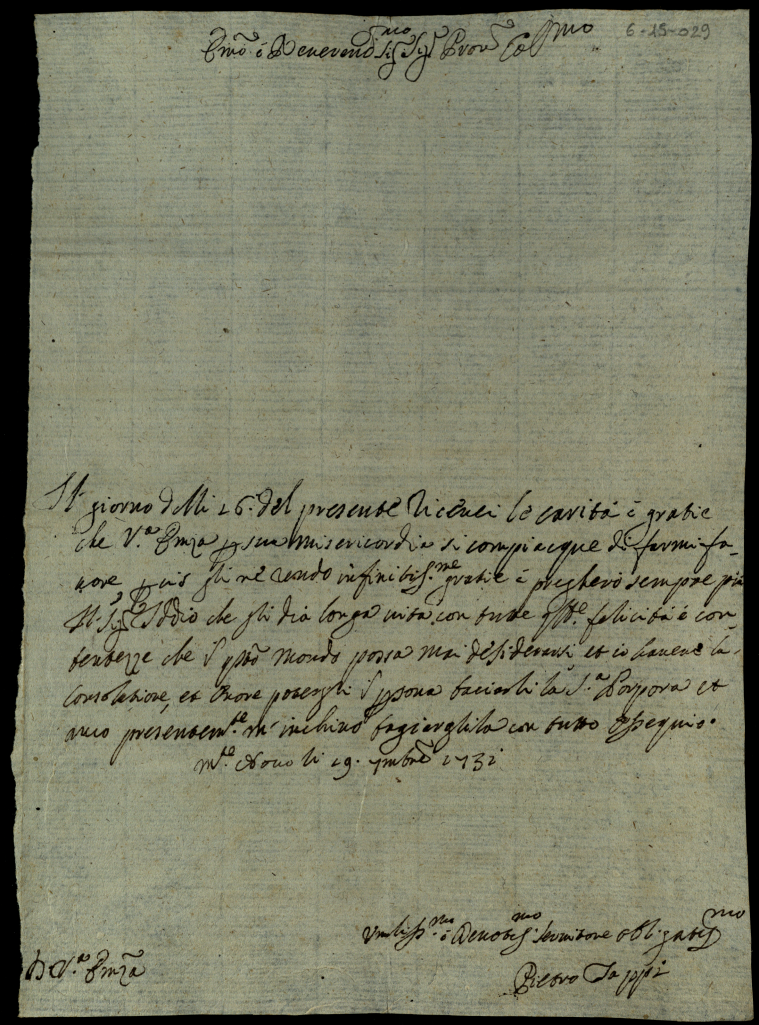 Emo e Reverend.mo Sig.r Sig.r Pron Col.mo
6-15-029
Il giorno delli 16. del presente riceuei le carità è gratie
che V.a Emza p sua misericordia si compiacque di farmi fa-
uore p cio gli ne rendo infinitis.me gratie è pregherò sempre più
N. Sig.r Iddio che gli dia longa uita con tutte q.ste felicità è con
tentezze che i q.sto mondo possa mai desiderarsi et io hauere la
Consolatione, et onore potergli i psona baciarli la S.a Porpora et
anco presentem.te m'inchino bagiarghila con tutto Ossequio.
M.te Nouo li 19. 7mbre 1731
Vmiliss.mo è Deuotis.mo seruitore obligatis.mo
D V.a Emza
Pietro Tappi